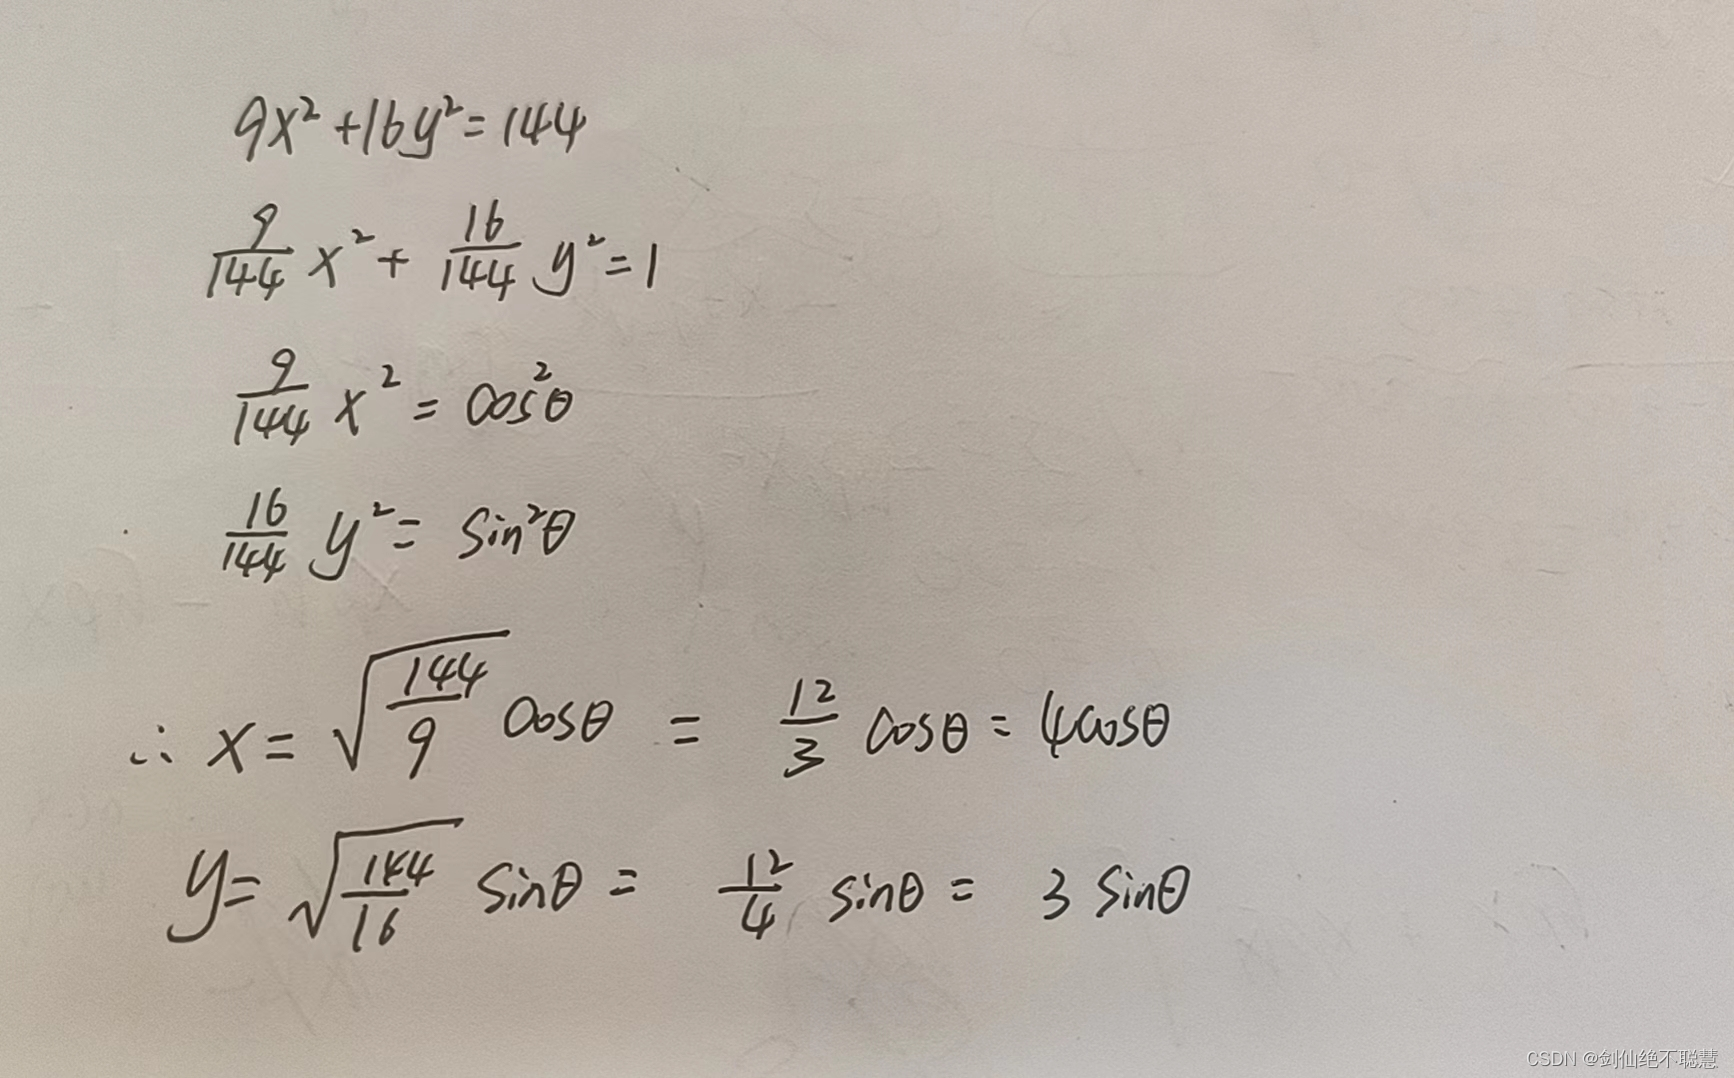 9x²+16y²=144
9/144 x²+ 16/144 y²=1
9/144 x²= cos²θ
16/144 y²= sin²θ
∴ x= √(144/9) cosθ = 12/3 cosθ = 4cosθ
y= √(144/16) sinθ = 12/4 sinθ = 3 sinθ
CSDN @剑仙绝不聪慧